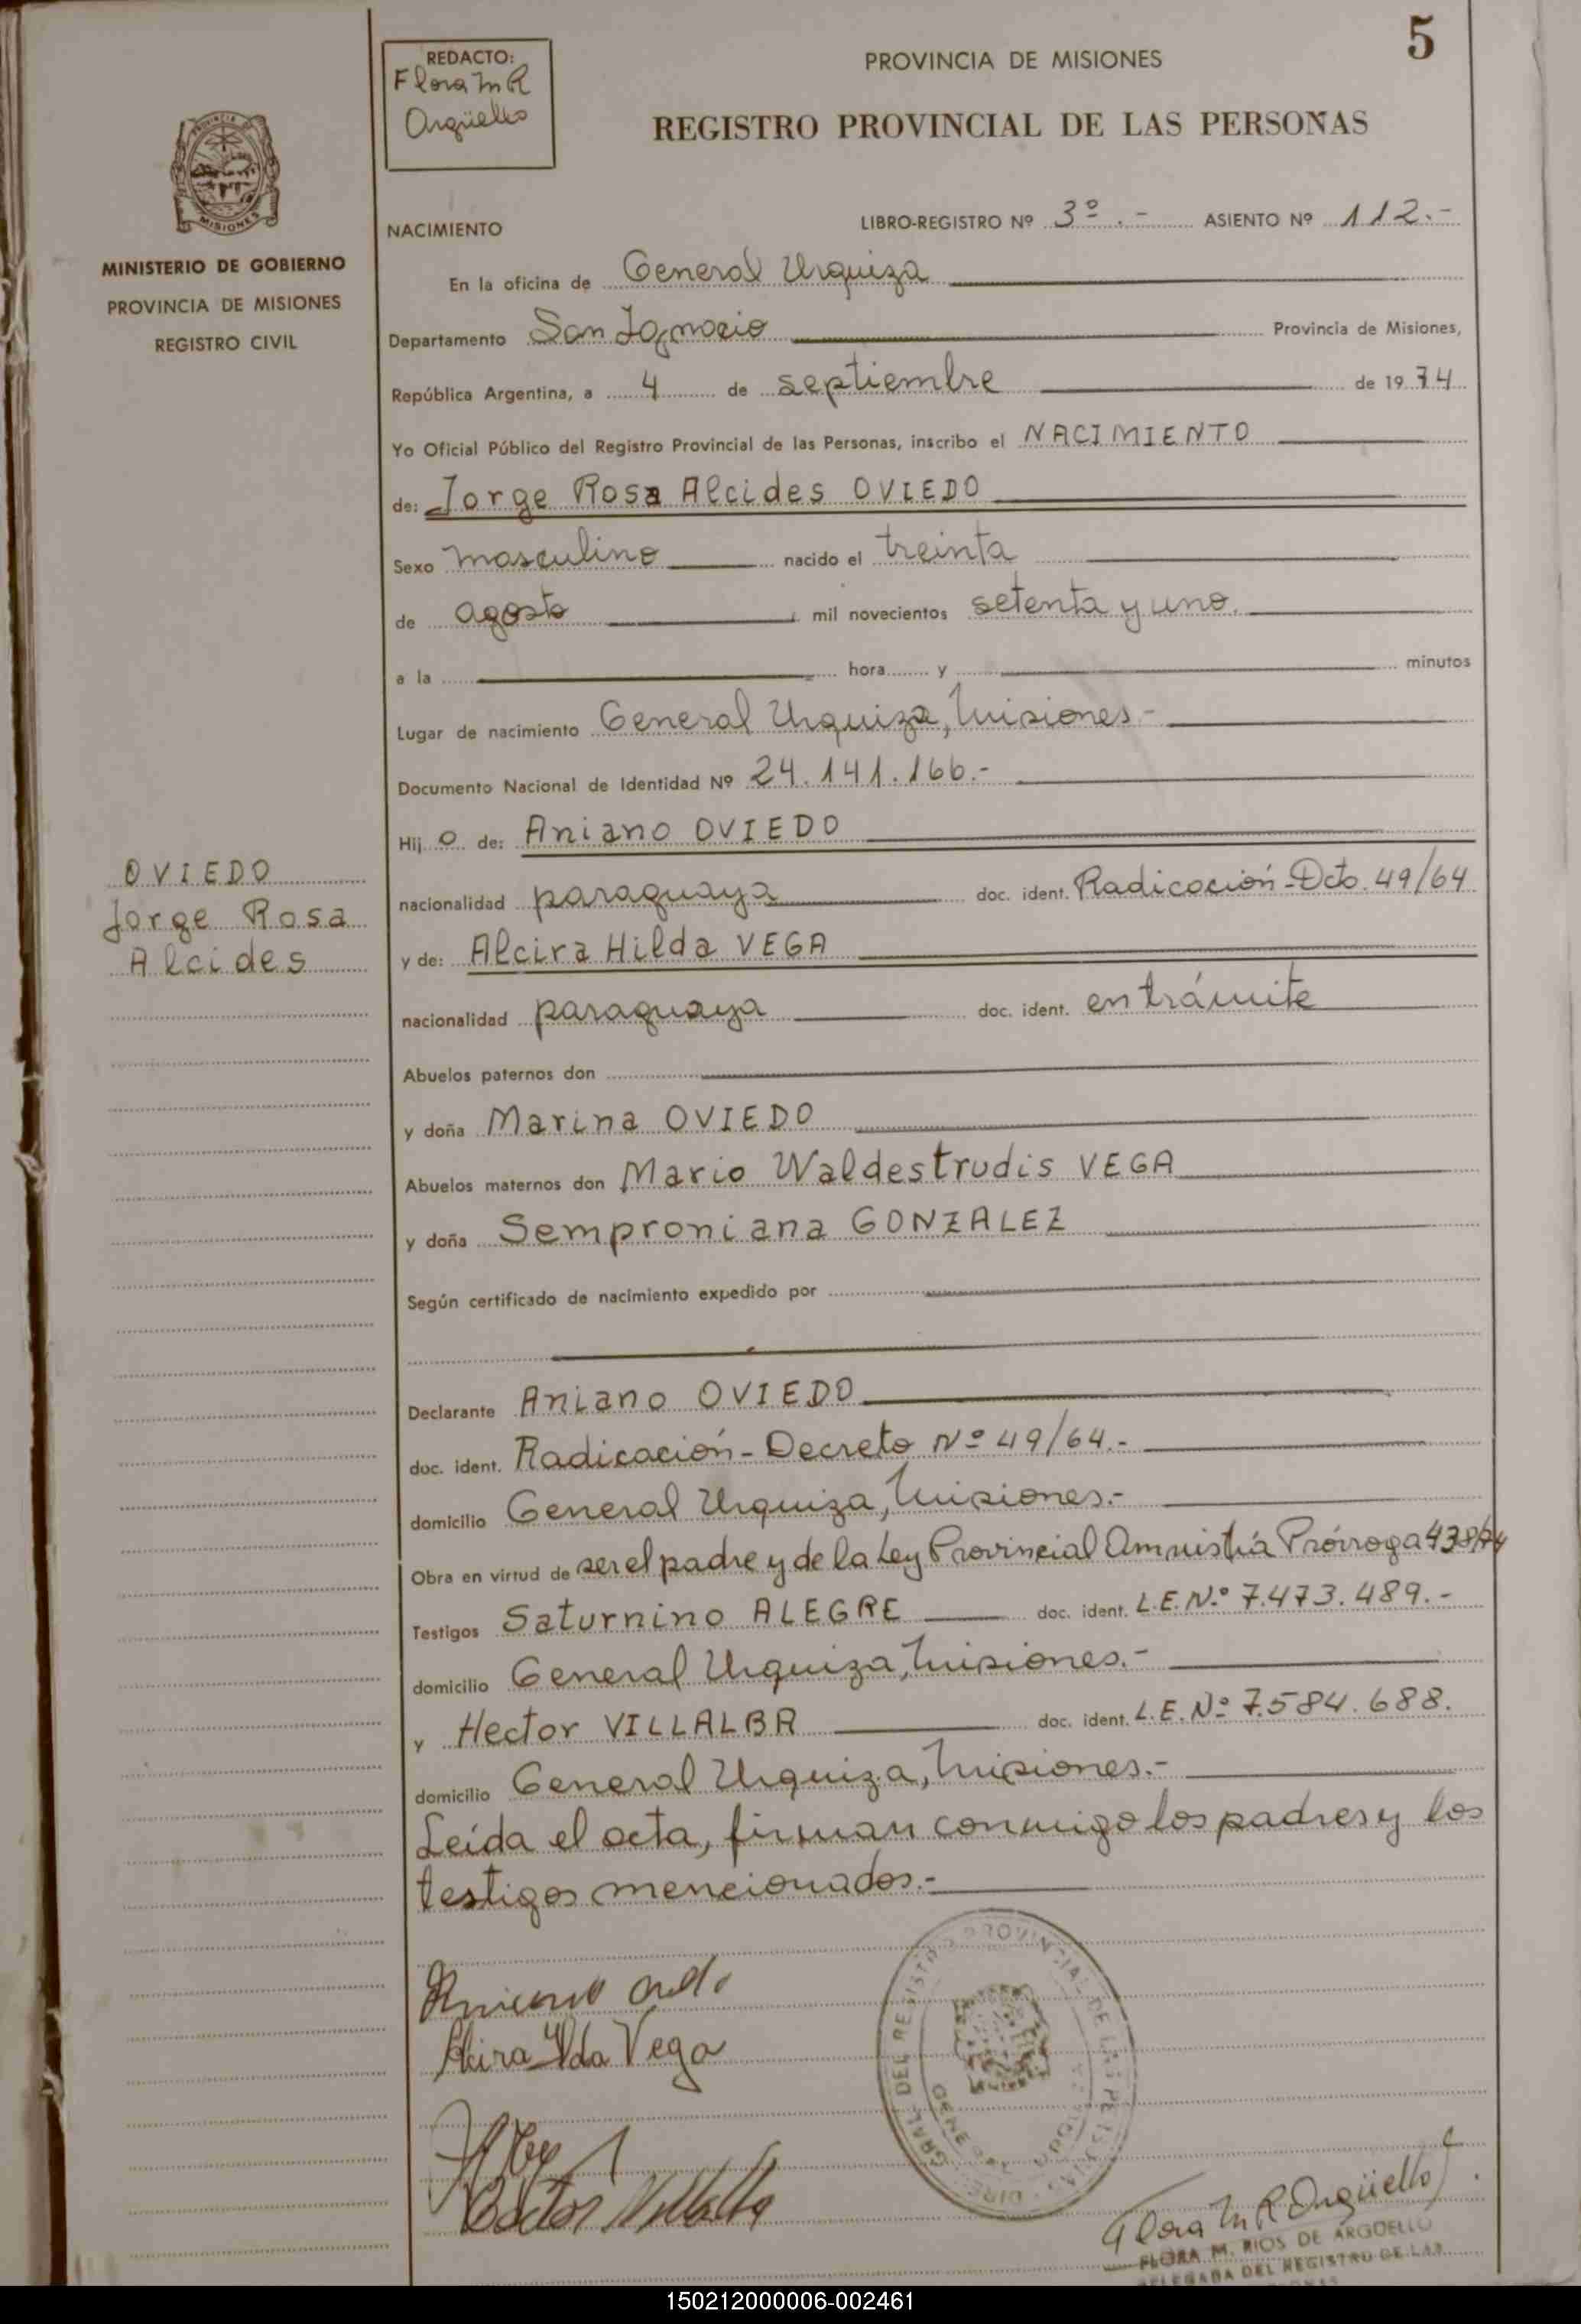 5
REDACTO:
Flora M R
Argüello
PROVINCIA DE MISIONES
REGISTRO PROVINCIAL DE LAS PERSONAS
MISIONES
MINISTERIO DE GOBIERNO
PROVINCIA DE MISIONES
REGISTRO CIVIL
NACIMIENTO LIBRO-REGISTRO Nº 3º.- ASIENTO Nº 112.-
En la oficina de General Urquiza
Departamento San Ignacio Provincia de Misiones,
República Argentina, a 4 de septiembre de 1974
Yo Oficial Público del Registro Provincial de las Personas, inscribo el NACIMIENTO
de: Jorge Rosa Alcides OVIEDO
Sexo masculino nacido el treinta
de agosto mil novecientos setenta y uno.
a la hora y minutos
Lugar de nacimiento General Urquiza, Misiones.-
Documento Nacional de Identidad Nº 24.141.166.-
Hij o de: Aniano OVIEDO
OVIEDO
Jorge Rosa
Alcides
nacionalidad paraguaya doc. ident. Radicación-Dcto. 49/64
y de: Alcira Hilda VEGA
nacionalidad paraguaya doc. ident. en trámite
Abuelos paternos don
y doña Marina OVIEDO
Abuelos maternos don Mario Waldestrudis VEGA
y doña Semproniana GONZALEZ
Según certificado de nacimiento expedido por
Declarante Aniano OVIEDO
doc. ident. Radicación-Decreto Nº 49/64.-
domicilio General Urquiza, Misiones.-
Obra en virtud de ser el padre y de la Ley Provincial Amnistía Prórroga 438/74
Testigos Saturnino ALEGRE doc. ident. L.E.Nº 7.473.489.-
domicilio General Urquiza, Misiones.-
y Hector VILLALBA doc. ident. L.E.Nº 7.584.688.
domicilio General Urquiza, Misiones.-
Leída el acta, firman conmigo los padres y los
testigos mencionados.-
Alcira Ilda Vega
Flora M R Argüello
FLORA M. RIOS DE ARGÜELLO
DELEGADA DEL REGISTRO DE LAS
150212000006-002461